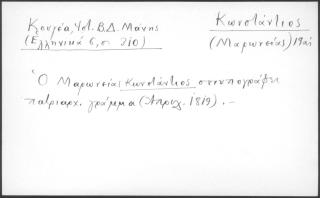 Κωνστάντιος
Κουγέα, Υστ. Β.Δ. Μάνης
(Ελληνικά 6, σ. 210)
(Μαρωνείας) 19αι
Ὁ Μαρωνείας Κωνστάντιος συνυπογράφει
πατριαρχ. γράμμα (Ἀπριλ. 1819). —